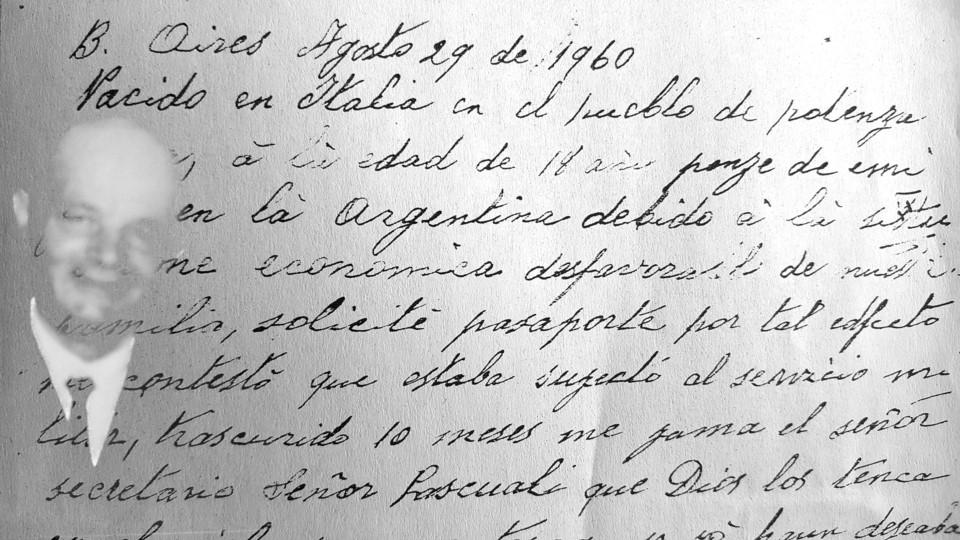 B. Aires Agosto 29 de 1960
Nacido en Italia en el pueblo de potenza
à la edad de 18 año penze de emi
en là Argentina debido à là
me economica desfavora de
familia, solicité pasaporte por tal edfecto
me contestó que estaba sujectó al servicio mi
litar, trascurido 10 meses me yama el señor
secretario Señor Pascuali que Dios los tenca
deseaba